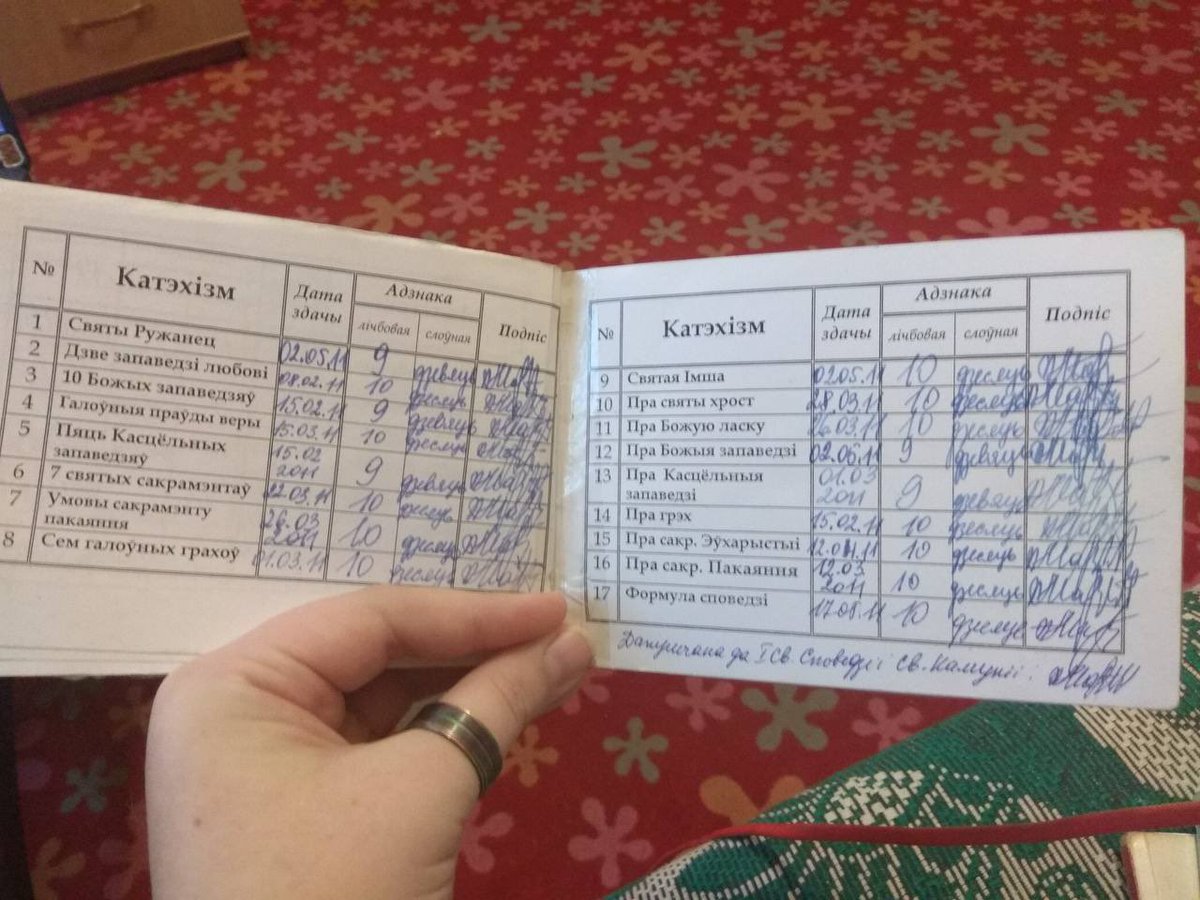 № Катэхізм Дата здачы Адзнака Подпіс
лічбовая слоўная
1 Святы Ружанец 02.05.11 9 дзевяць
2 Дзве запаведзі любові 08.02.11 10 дзесяць
3 10 Божых запаведзяў 15.02.11 9 дзевяць
4 Галоўныя праўды веры 15.03.11 10 дзесяць
5 Пяць Касцёльных
запаведзяў 15.02
2011 9 дзевяць
6 7 святых сакрамэнтаў 22.03.11 10 дзесяць
7 Умовы сакрамэнту
пакаяння 26.03
2011 10 дзесяць
8 Сем галоўных грахоў 01.03.11 10 дзесяць
№ Катэхізм Дата здачы Адзнака Подпіс
лічбовая слоўная
9 Святая Імша 02.05.11 10 дзесяць
10 Пра святы хрост 28.03.11 10 дзесяць
11 Пра Божую ласку 26.03.11 10 дзесяць
12 Пра Божыя запаведзі 02.06.11 9 дзевяць
13 Пра Касцёльныя
запаведзі 01.03
2011 9 дзевяць
14 Пра грэх 15.02.11 10 дзесяць
15 Пра сакр. Эўхарыстыі 12.04.11 10 дзесяць
16 Пра сакр. Пакаяння 12.03
2011 10 дзесяць
17 Формула споведзі 17.05.11 10 дзесяць
Дапушчана да I Св. Споведзі і Св. Камуніі: